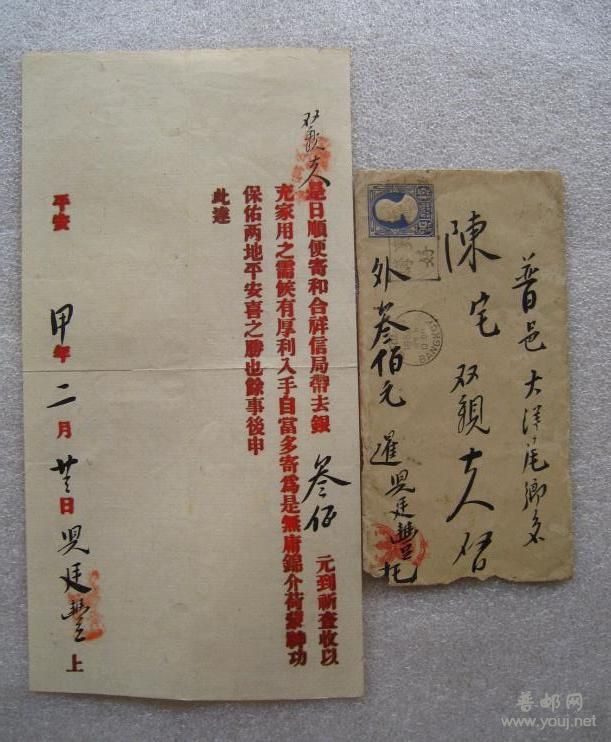 双親大人
是日順便寄和合祥信局帶去銀 叁佰 元到祈查收以
充家用之需候有厚利入手自當多寄爲是無庸錦介荷蒙神功
保佑两地平安喜之勝也餘事後申
此達
平安
甲年二月廿三日 兒廷豐 上
普邑大洋尾鄉交
陳宅 双親大人 啓
外叁佰元 暹兒廷豐 托
BANGKOK
普邮网
www.youj.net